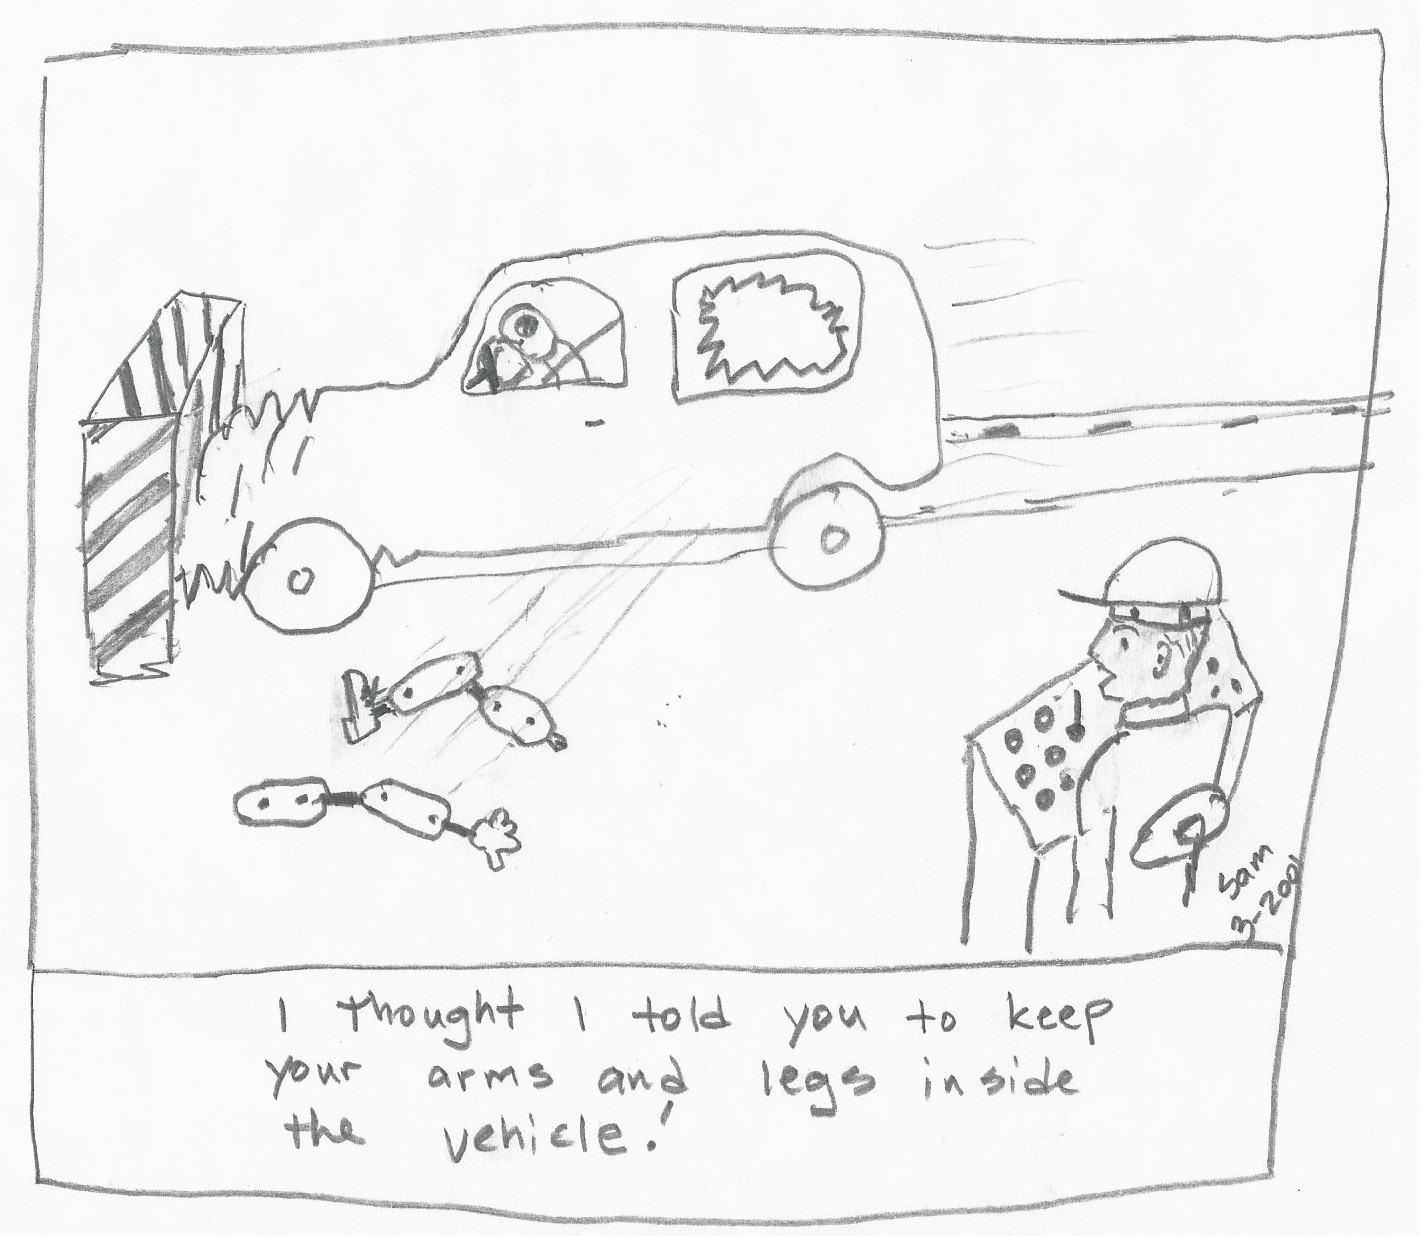 Sam
3-2001
I thought I told you to keep
your arms and legs inside
the vehicle!